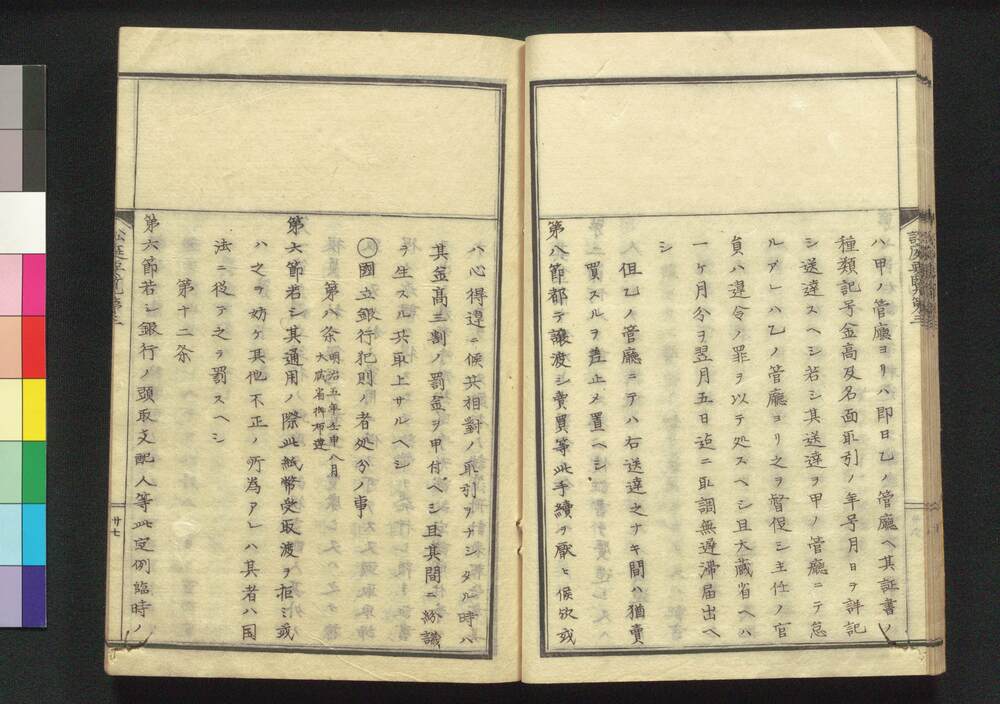 ハ甲ノ管廳ヨリハ即日乙ノ管廳ヘ其証書ノ
種類記号金高及名面取引ノ年号月日ヲ詳記
シ送達スヘシ若シ其送達ヲ甲ノ管廳ニテ怠
ルアレハ乙ノ管廳ヨリ之ヲ督促シ主任ノ官
員ハ違令ノ罪ヲ以テ処スヘシ且大藏省ヘハ
一ケ月分ヲ翌月五日迠ニ取調無遅滞届出ヘ
シ
但乙ノ管廳ニテハ右送達之ナキ間ハ猶賣
買スルヲ差止メ置ヘシ
第八節都テ譲渡シ賣買等此手續ヲ厭ヒ候欤或
ハ心得違ニ候共相對ノ取引ヲナシタル時ハ
其金高三割ノ罰金ヲ申付ヘシ且其間ニ紛議
ヲ生スル共取上サルヘシ
○國立銀行犯則ノ者処分ノ事
第八条 明治五年壬申八月
大藏省御布達
第六節若シ其通用ノ際此紙幣受取渡ヲ拒シ或
ハ之ヲ妨ケ其他不正ノ所為アレハ其者ハ国
法ニ従テ之ヲ罰スヘシ
第十二条
第六節若シ銀行ノ頭取支配人等此定例臨時ノ
廿七